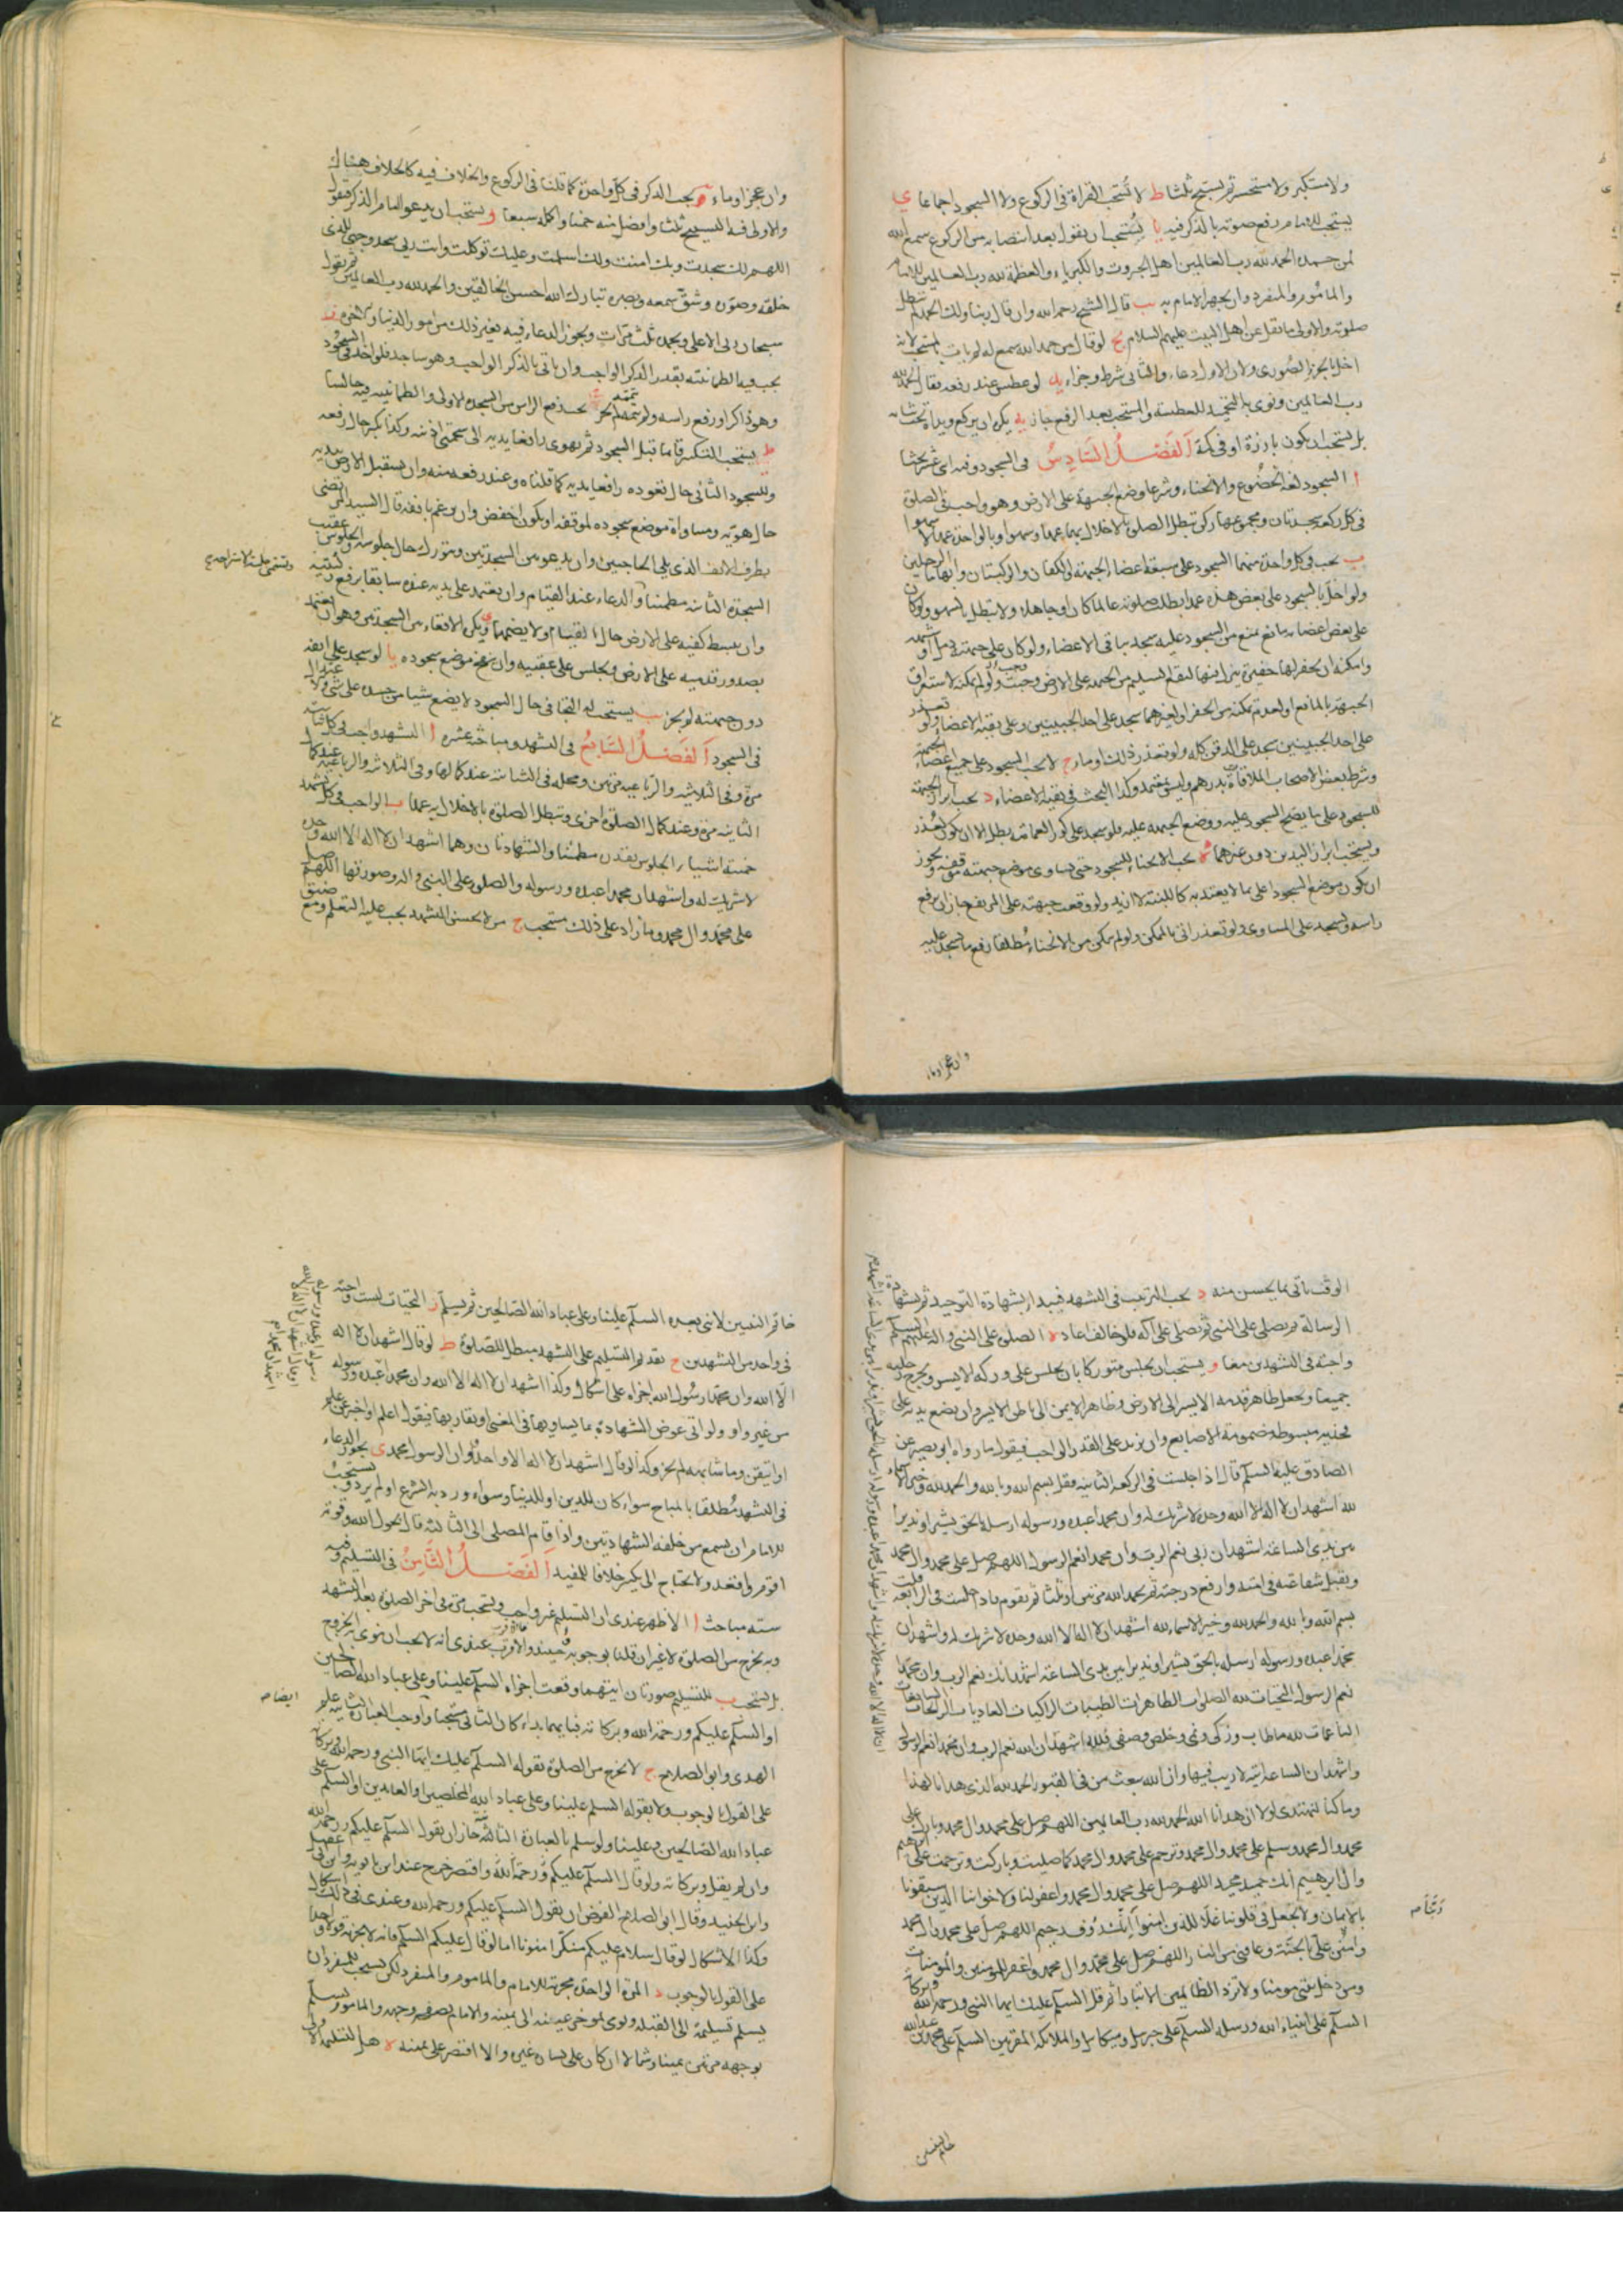 ولا مستكبر ولا مستحسر ثم يسبح ثلثا ط لا تستحب القراة فى الركوع ولا السجود اجماعا ى
يستحب للامام رفع صوته بالذكر فيه يا يستحب ان يقول بعد انتصابه من الركوع سمع الله
لمن حمده الحمد لله رب العالمين اهل الجبروت والكبرياء والعظمة لله رب العالمين للامام
والماموم والمنفرد وان يجهر الامام به يب قال الشيخ رحمه الله وان قال ربنا ولك الحمد لم تبطل
صلوته والاولى ما نقل عن اهل البيت عليهم السلام يج لو قال من حمد الله سمع له لم يات بالمستحب لانه
اخل بالجزء الصورى ولان الاول دعاء والثانى شرط وجزاء يد لو عطس عند رفعه فقال الحمد لله
رب العالمين ونوى بالتحميد للعطسة والمستحب بعد الرفع جاز يه يكره ان يركع ويداه تحت ثيابه
بل يستحب ان يكون بارزة او فى كمه الفصل السادس فى السجود وفيه اى عشر بحثا
ا السجود لغة الخضوع والانحناء وشرعا وضع الجبهة على الارض وهو واجب فى الصلوة
فى كل ركعة سجدتان ومجموعهما ركن تبطل الصلوة بالاخلال بهما عمدا وسهوا وبالواحدة عمدا لا سهوا
ب يجب فى كل واحدة منهما السجود على سبعة اعضاء الجبهة والكفان والركبتان وابهاما الرجلين
ولو اخل بالسجود على بعض هذه عمدا بطلت صلوته عالما كان او جاهلا ولا تبطل بالسهو ولو كان
على بعض اعضائه مانع يمنع من السجود عليه سجد بباقى الاعضاء ولو كان على جبهته دمل او شبهه
وامكنه ان يحفر لها حفيرة ينزل فيها ليقع السليم من الجبهة على الارض وجب ولو لم يمكنه لاستغراق
الجبهة بالمانع او لعدم تمكنه من الحفر او لغيرهما سجد على احد الجبينين وعلى بقية الاعضاء ولو تعذر
على احد الجبينين سجد على الذقن كله ولو تعذر ذلك اوما ج لا يجب السجود على جميع اعضاء الجبهة
وشرط بعض الاصحاب الملاقاة بدرهم وليس بمعتمد وكذا البحث فى بقية الاعضاء د يجب ابراز الجبهة
للسجود على ما يصح السجود عليه ووضع الجبهة عليه فلو سجد على كور العمامة بطل الا ان يكون لعذر
ويستحب ابراز اليدين دون غيرهما ه يجب الانحناء للسجود حتى يساوى موضع جبهته موقفه ويجوز
ان يكون موضع السجود اعلى بما لا يعتد به كاللبنة لا ازيد ولو وقعت جبهته على المرتفع جاز ان يرفع
راسه ويسجد على المساوى ولو تعذر اتى بالممكن ولو لم يتمكن من الانحناء مطلقا رفع ما يسجد عليه
وان عجز اوماء
وان عجز اوماء و يجب الذكر فى كل واحدة كما قلنا فى الركوع والخلاف فيه كالخلاف هناك
والاولى فيه التسبيح ثلثا وافضل منه خمسا واكمله سبعا ويستحب ان يدعو امام الذكر فيقول
اللهم لك سجدت وبك امنت ولك اسلمت وعليك توكلت وانت ربى سجد وجهى للذى
خلقه وصوره وشق سمعه وبصره تبارك الله احسن الخالقين والحمد لله رب العالمين ثم يقول
سبحان ربى الاعلى وبحمده ثلث مرات ويجوز الدعاء فيه بغير ذلك من امور الدنيا والاخرة ز
يجب فيه الطمانينة بقدر الذكر الواجب وان ياتى بالذكر الواجب وهو ساجد فلو اخذ فى السجود
وهو ذاكر او رفع راسه ولم يتمه لم يجز ح يجب رفع الراس من السجدة الاولى والطمانينة فيه جالسا
ط يستحب التكبير قائما قبل السجود ثم يهوى رافعا يديه الى شحمتى اذنيه وكذا يكبر حال رفعه
وللسجود الثانى حال قعوده رافعا يديه كما قلناه وعند رفعه منه وان يستقبل الارض بيديه
حال هويه ومساواة موضع سجوده لموقفه او يكون اخفض وان يرغم بانفه قال السيد المرتضى
بطرف الانف الذى يلى الحاجبين وان يدعو بين السجدتين ويتورك حال جلوسه والجلوس عقيب
السجدة الثانية مطمئنا والدعاء عند القيام وان يعتمد على يديه عنده سابقا برفع ركبتيه
وتسمى جلسة الاستراحة صح
وان يبسط كفيه على الارض حال القيام ولا يضمهما ى ويكره الاقعاء بين السجدتين وهو ان يعتمد
بصدور قدميه على الارض ويجلس على عقبيه وان ينفخ موضع سجوده يا لو سجد على انفه
دون جبهته لم يجز يب يستحب له التجافى حال السجود لا يضع شيئا من جسده على شىء
فى السجود الفصل السابع فى التشهد ومباحثه عشرة ا التشهد واجب فى كل ثنائية
مرة وفى الثلاثية والرباعية مرتين ومحله فى الثنائية عند كمالها وفى الثلاثية والرباعية عند كمال
الثانية مرة وعند كمال الصلوة اخرى وتبطل الصلوة بالاخلال به عمدا ب الواجب فى كل تشهد
خمسة اشياء الجلوس بقدره مطمئنا والشهادتان وهما اشهد ان لا اله الا الله وحده
لا شريك له واشهد ان محمدا عبده ورسوله والصلوة على النبى واله وصورتها اللهم صل
على محمد وال محمد وما زاد على ذلك مستحب ج من لا يحسن التشهد يجب عليه التعلم ومع ضيق
الوقت ياتى بما يحسن منه د يجب الترتيب فى التشهد فيبدا بشهادة التوحيد ثم بشهادة
الرسالة ثم يصلى على النبى ثم يصلى على اله فلو خالف اعاد ه الصلوة على النبى واله عليهم السلام
واجبة فى التشهدين معا و يستحب ان يجلس متوركا بان يجلس على وركه الايسر ويخرج رجليه
جميعا ويجعل ظاهر قدمه الايسر الى الارض وظاهر الايمن الى باطن الايسر وان يضع يديه على
فخذيه مبسوطة مضمومة الاصابع وان يزيد على القدر الواجب فيقول ما رواه ابو بصير عن
الصادق عليه السلام قال اذا جلست فى الركعة الثانية فقل بسم الله وبالله والحمد لله وخير الاسماء
لله اشهد ان لا اله الا الله وحده لا شريك له وان محمدا عبده ورسوله ارسله بالحق بشيرا ونذيرا
بين يدى الساعة اشهد ان ربى نعم الرب وان محمدا نعم الرسول اللهم صل على محمد وال محمد
وتقبل شفاعته فى امته وارفع درجته ثم يحمد الله مرتين او ثلثا ثم تقوم فاذا جلست فى الرابعة قلت
بسم الله وبالله والحمد لله وخير الاسماء لله اشهد ان لا اله الا الله وحده لا شريك له واشهد ان
محمدا عبده ورسوله ارسله بالحق بشيرا ونذيرا بين يدى الساعة اشهد انك نعم الرب وان محمدا
نعم الرسول التحيات لله الصلوات الطاهرات الطيبات الزاكيات الغاديات الرائحات السابغات
الناعمات لله ما طاب وزكى ونمى وخلص وصفى فلله اشهد ان الله نعم الرب وان محمدا نعم الرسول
واشهد ان الساعة اتية لا ريب فيها وان الله يبعث من فى القبور الحمد لله الذى هدانا لهذا
وما كنا لنهتدى لولا ان هدانا الله الحمد لله رب العالمين اللهم صل على محمد وال محمد وبارك على
محمد وال محمد وسلم على محمد وال محمد وترحم على محمد وال محمد كما صليت وباركت وترحمت على ابرهيم
وال ابرهيم انك حميد مجيد اللهم صل على محمد وال محمد واغفر لنا ولاخواننا الذين سبقونا
بالايمان ولا تجعل فى قلوبنا غلا للذين امنوا انك رؤف رحيم اللهم صل على محمد وال محمد
ربنا صح
وامنن على بالجنة وعافنى من النار اللهم صل على محمد وال محمد واغفر للمؤمنين والمؤمنات
ومن دخل بيتى مؤمنا ولا تزد الظالمين الا تبارا ثم قل السلام عليك ايها النبى ورحمة الله وبركاته
السلام على انبياء الله ورسله السلام على جبريل وميكائيل والملائكة المقربين السلام على محمد بن عبد الله
خاتم النبيين
خاتم النبيين لا نبى بعده السلام علينا وعلى عباد الله الصالحين ثم يسلم ز التحيات ليست واجبة
فى واحد من التشهدين ح تقديم التسليم على التشهد مبطل للصلوة ط لو قال اشهد ان لا اله
الا الله وان محمدا رسول الله اجزاه على اشكال وكذا اشهد ان لا اله الا الله وان محمدا عبده ورسوله
من غير واو ولو اتى عوض الشهادة بما يساويها فى المعنى او يقاربها فيقول اعلم او اخبر عن علم
او اتيقن وما شابهه لم يجز وكذا لو قال اشهد ان لا اله الا واحد او ان الرسول محمد ى يجوز الدعاء
فى التشهد مطلقا بالمباح سواء كان للدين او للدنيا وسواء ورد به الشرع او لم يرد ويستحب
للامام ان يسمع من خلفه الشهادتين واذا قام المصلى الى الثالثة قال بحول الله وقوته
اقوم واقعد ولا يحتاج الى تكبير خلافا للمفيد الفصل الثامن فى التسليم وفيه
ستة مباحث ا الاظهر عندى ان التسليم غير واجب ويستحب مرة فى اخر الصلوة بعد التشهد
وبه يخرج من الصلوة لا غير ان قلنا بوجوبه حينئذ والاقرب عندى انه لا يجب ان ينوى به الخروج
بل يستحب ب للتسليم صورتان ايتهما وقعت اجزاه السلام علينا وعلى عباد الله الصالحين
ايضا صح
او السلام عليكم ورحمة الله وبركاته فبايهما بداء كان الثانى مستحبا واوجب العبارة الثانية علم
الهدى وابو الصلاح ج لا يخرج من الصلوة بقوله السلام عليك ايها النبى ورحمة الله وبركاته
على القول بالوجوب ولا بقوله السلام علينا وعلى عباد الله المخلصين او العابدين او السلام على
عباد الله الصالحين وعلينا ولو سلم بالعبارة الثانية جاز ان يقول السلام عليكم ورحمة الله
وان لم يقل وبركاته ولو قال السلام عليكم ورحمة الله واقتصر خرج عند ابن بابويه وابن ابى عقيل
وابن الجنيد وقال ابو الصلاح الفرض ان يقول السلام عليكم ورحمة الله وعندى فى ذلك اشكال
وكذا الاشكال لو قال سلام عليكم منكرا منونا اما لو قال عليكم السلام فانه لا يجزيه قولا واحدا
على القول بالوجوب د المرة الواحدة مجزية للامام والماموم والمنفرد لكن يستحب للمنفرد ان
يسلم تسليمة الى القبلة ويومى بمؤخر عينيه الى يمينه والامام بصفحة وجهه والماموم يسلم
بوجهه مرتين يمينا وشمالا ان كان على يساره غيره والا اقتصر على يمينه ه هل التسليمة الاولى